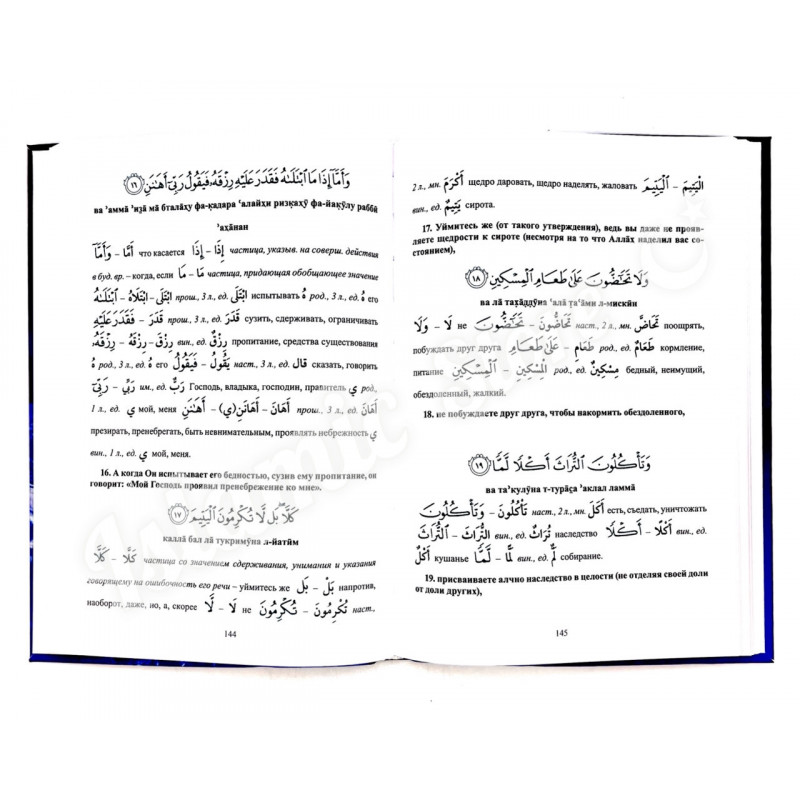 وَأَمَّآ إِذَا مَا ٱبْتَلَىٰهُ فَقَدَرَ عَلَيْهِ رِزْقَهُۥ فَيَقُولُ رَبِّىٓ أَهَـٰنَنِ ١٦
ва ’аммā ’из̱ā мā бталāху фа-к̣адара ‘алайхи ризк̣ахӯ фа-йак̣ӯлу раббӣ
’ахāнан
وَأَمَّآ – أَمَّا что касается إِذَا – إِذَا частица, указыв. на соверш. действия
в буд. вр. – когда, если مَا – مَا частица, придающая обобщающее значение
ٱبْتَلَىٰهُ – اِبْتَلَاهُ – اِبْتَلَى прош., 3 л., ед. اِبْتَلَى испытывать هُ род., 3 л., ед. هُ его
فَقَدَرَ عَلَيْهِ – قَدَرَ прош., 3 л., ед. قَدَرَ сузить, сдерживать, ограничивать
رِزْقَهُۥ – رِزْقَهُ – رِزْقَ вин., ед. رِزْقٌ пропитание, средства существования
هُ род., 3 л., ед. هُ его فَيَقُولُ – يَقُولُ наст., 3 л., ед. قَالَ сказать, говорить
رَبِّىٓ – رَبِّي им., ед. رَبٌّ Господь, владыка, господин, правитель ي род.,
1 л., ед. ي мой, меня أَهَـٰنَنِ – أَهَانَنِ(ي) – أَهَانَ прош., 3 л., ед. أَهَانَ
презирать, пренебрегать, быть невнимательным, проявлять небрежность ي
вин., 1 л., ед. ي мой, меня.
16. А когда Он испытывает его бедностью, сузив ему пропитание, он
говорит: «Мой Господь проявил пренебрежение ко мне».
كَلَّا ۖ بَل لَّا تُكْرِمُونَ ٱلْيَتِيمَ ١٧
каллā бал лā тукримӯна л-йатӣм
كَلَّا – كَلَّا частица со значением сдерживания, унимания и указания
говорящему на ошибочность его речи – уймитесь же بَل – بَلْ напротив,
наоборот, даже, но, а, скорее لَّا – لَا не تُكْرِمُونَ – تُكْرِمُونَ наст.,
144
2 л., мн. أَكْرَمَ щедро даровать, щедро наделять, жаловать ٱلْيَتِيمَ – الْيَتِيمَ
вин., ед. يَتِيمٌ сирота.
17. Уймитесь же (от такого утверждения), ведь вы даже не прояв-
ляете щедрости к сироте (несмотря на то что Аллах̣ наделил вас со-
стоянием),
وَلَا تَحَـٰٓضُّونَ عَلَىٰ طَعَامِ ٱلْمِسْكِينِ ١٨
ва лā тах̣āд̣д̣ӯна ‘алā т̣а‘āми л-мискӣн
وَلَا – لَا не تَحَـٰٓضُّونَ – تَحَاضُّونَ наст., 2 л., мн. تَحَاضَّ поощрять,
побуждать друг друга عَلَىٰ طَعَامِ – طَعَامِ род., ед. طَعَامٌ кормление,
питание ٱلْمِسْكِينِ – الْمِسْكِينِ род., ед. مِسْكِينٌ бедный, неимущий,
обездоленный, жалкий.
18. не побуждаете друг друга, чтобы накормить обездоленного,
وَتَأْكُلُونَ ٱلتُّرَاثَ أَكْلًا لَّمًّا ١٩
ва та’кулӯна т-турāс̱а ’аклал ламмā
وَتَأْكُلُونَ – تَأْكُلُونَ наст., 2 л., мн. أَكَلَ есть, съедать, уничтожать
ٱلتُّرَاثَ – التُّرَاثَ вин., ед. تُرَاثٌ наследство أَكْلًا – أَكْلًا вин., ед.
أَكْلٌ кушанье لَّمًّا – لَمًّا вин., ед. لَمٌّ собирание.
19. присваиваете алчно наследство в целости (не отделяя своей доли
от доли других),
145